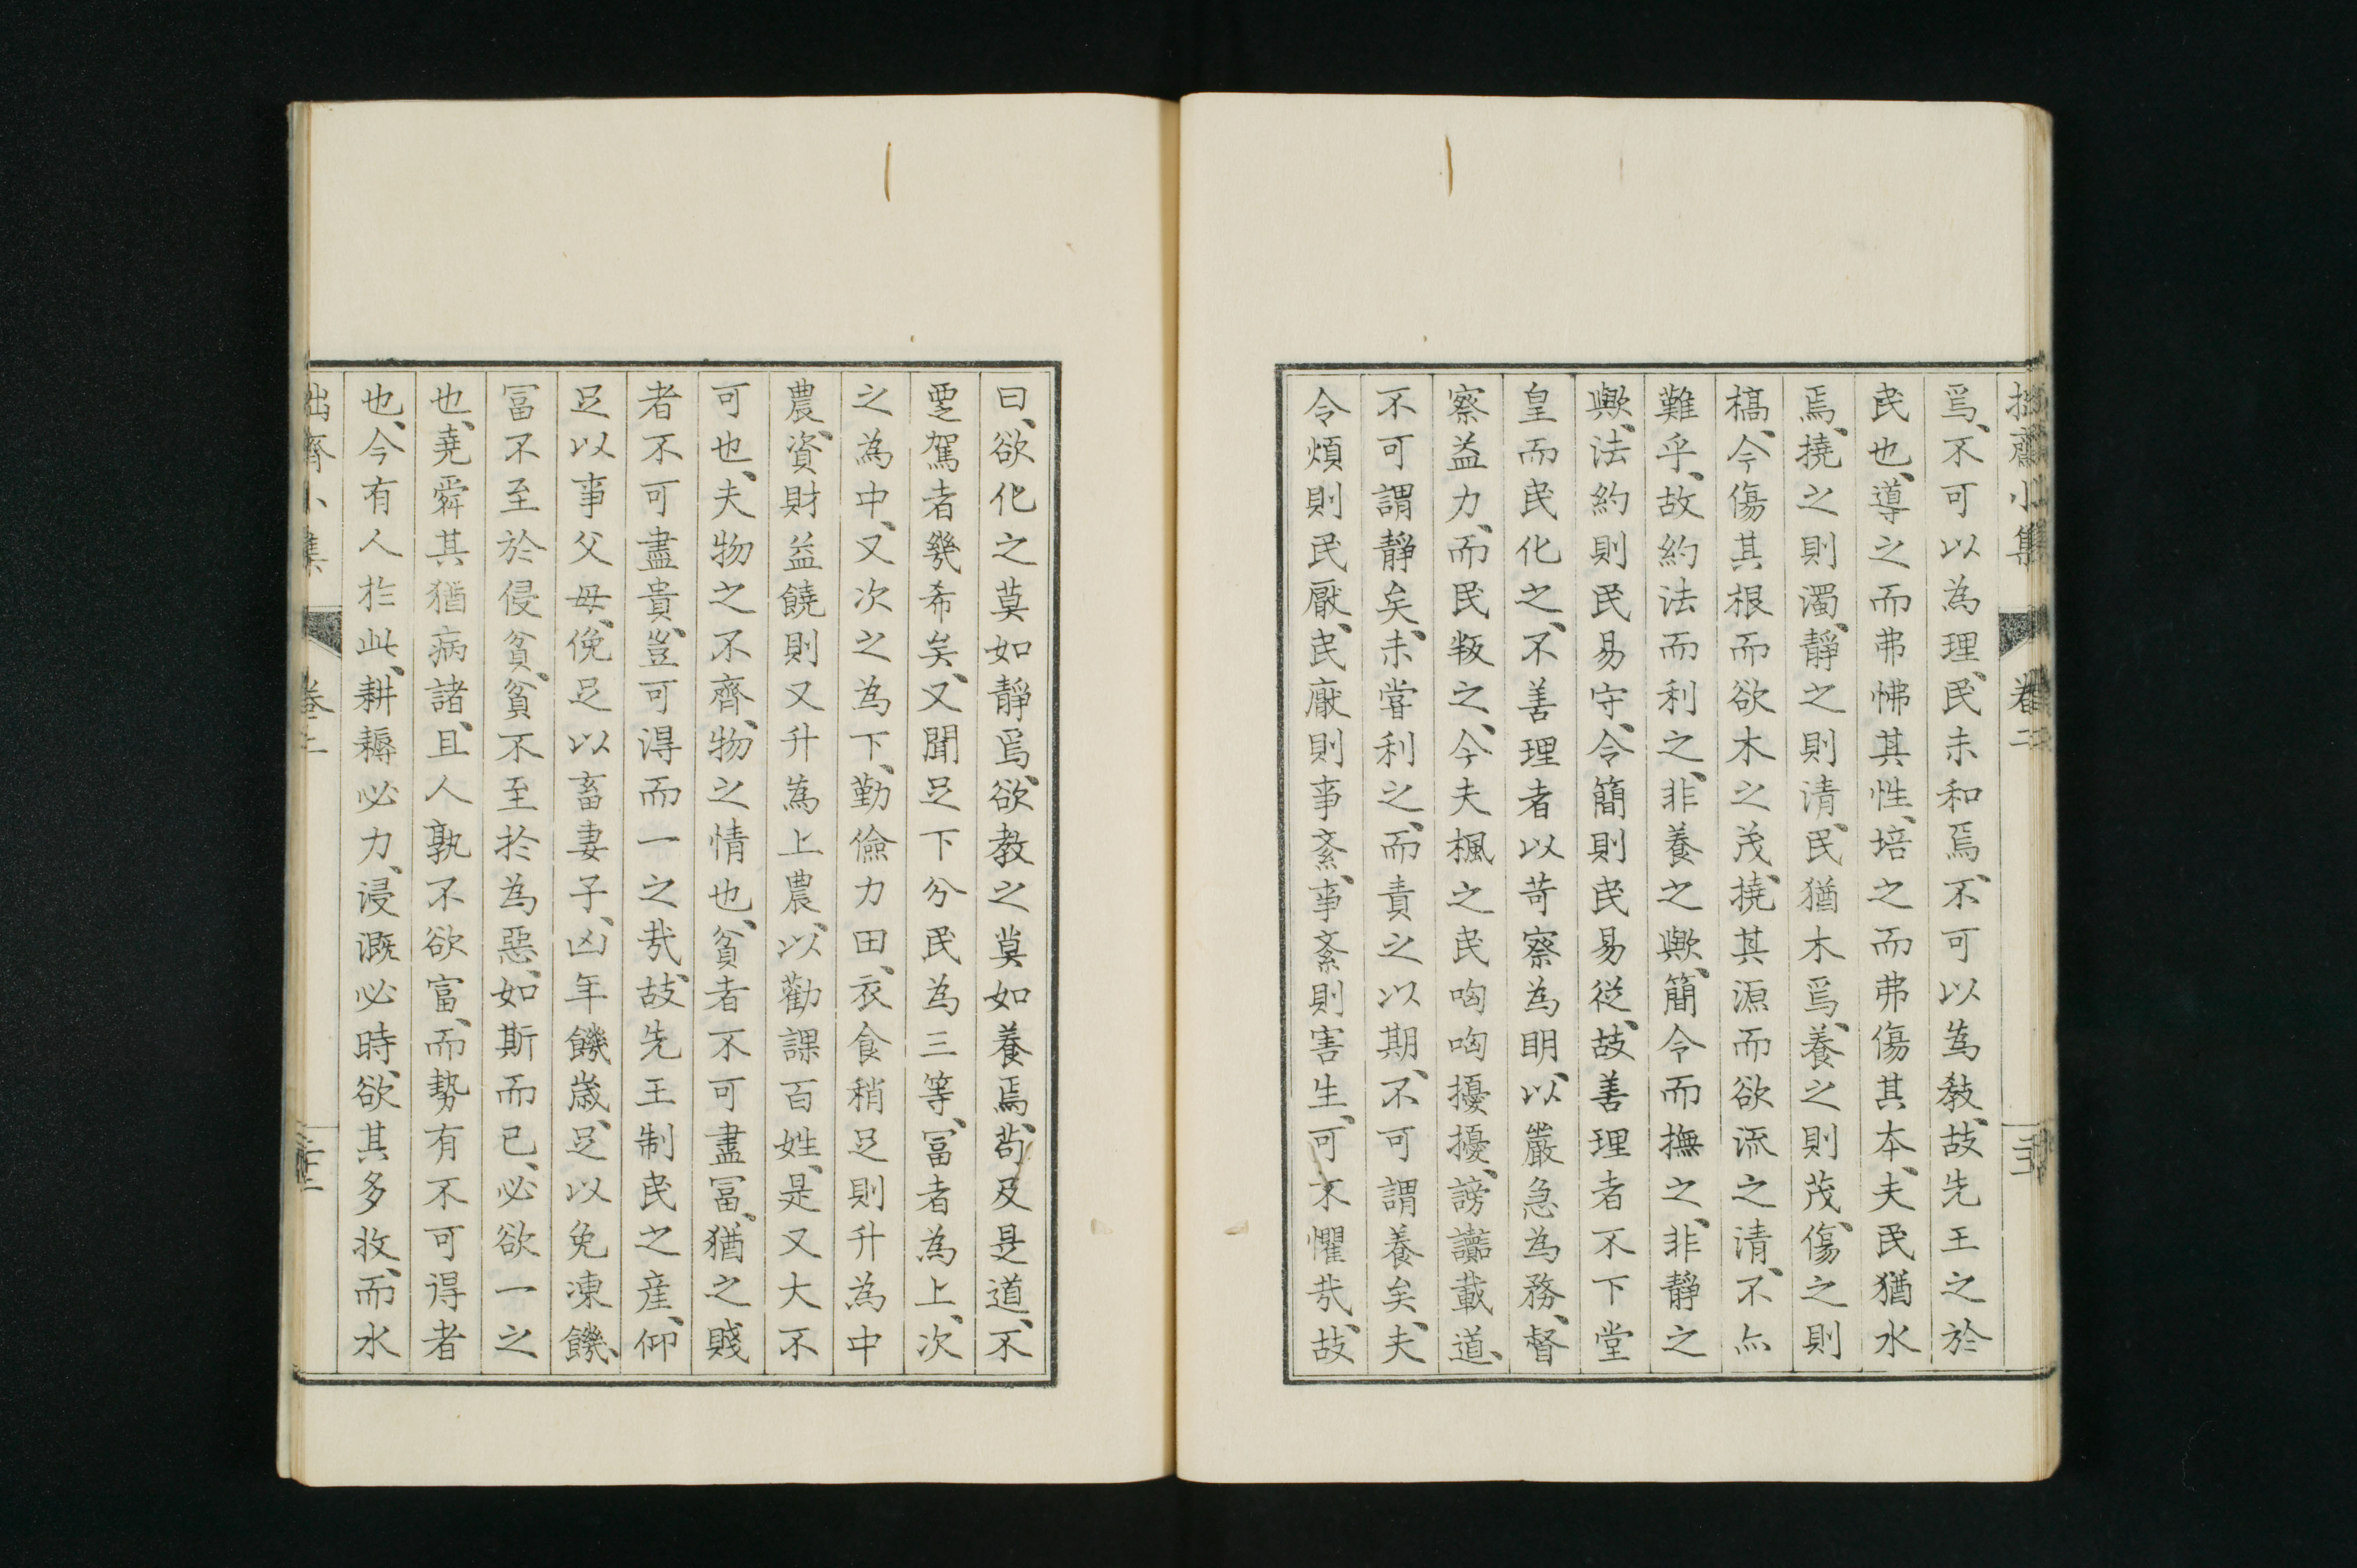 拙齋小集 卷二
焉、不可以為理、民未和焉、不可以為敎、故先王之於
民也、導之而弗怫其性、培之而弗傷其本、夫民猶水
焉、撓之則濁、靜之則清、民猶木焉、養之則茂、傷之則
槁、今傷其根而欲木之茂、撓其源而欲流之清、不亦
難乎、故約法而利之、非養之歟、簡令而撫之、非靜之
歟、法約則民易守、令簡則民易從、故善理者不下堂
皇而民化之、不善理者以苛察為明、以嚴急為務、督
察益力、而民叛之、今夫楓之民啕啕擾擾、謗讟載道、
不可謂靜矣、未嘗利之、而責之以期、不可謂養矣、夫
令煩則民厭、民厭則事紊、事紊則害生、可不懼哉、故
曰、欲化之莫如靜焉、欲教之莫如養焉、苟及是道、不
覂駕者幾希矣、又聞足下分民為三等、冨者為上、次
之為中、又次之為下、勤儉力田、衣食稍足則升為中
農、資財益饒則又升為上農、以勸課百姓、是又大不
可也、夫物之不齊、物之情也、貧者不可盡冨、猶之賤
者不可盡貴、豈可得而一之哉、故先王制民之産、仰
足以事父母、俛足以畜妻子、凶年饑歳、足以免凍饑、
冨不至於侵貧、貧不至於為惡、如斯而已、必欲一之
也、堯舜其猶病諸、且人孰不欲富、而勢有不可得者
也、今有人於此、耕耨必力、浸溉必時、欲其多收、而水
拙齋小集 卷二